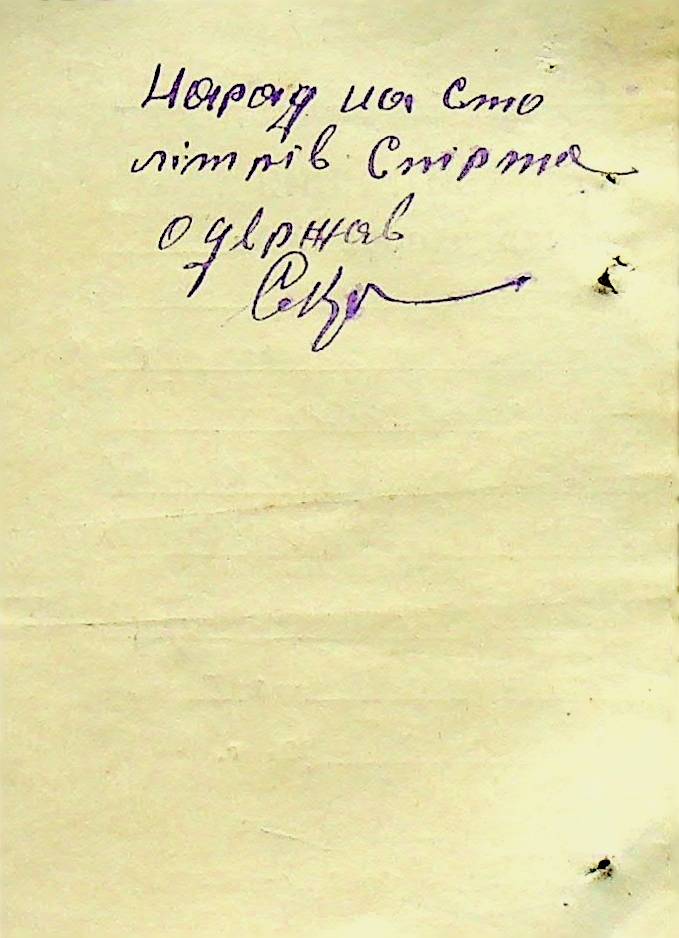 Наряд на сто
літрів спірта
одержав